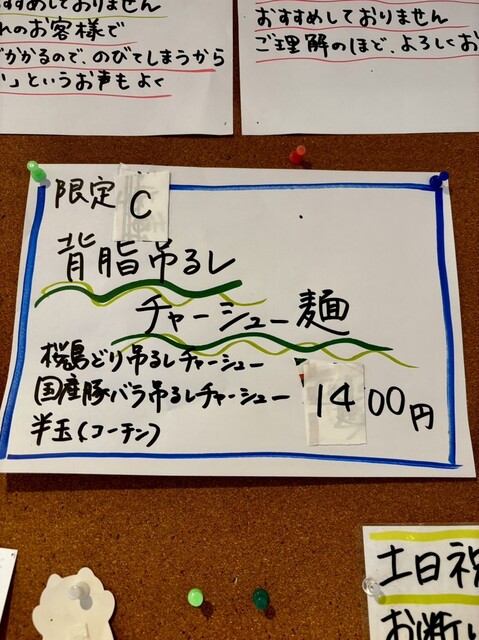 すすめしておりません
れのお客様で
がかかるので、のびてしまうから
い」というお声もよく
おすすめしておりません
ご理解のほど、よろしくお
限定 C
背脂吊るし
チャーシュー麺
桜島どり吊るしチャーシュー
国産豚バラ吊るしチャーシュー
半玉(コーチン)
1400円
土日祝
お断い